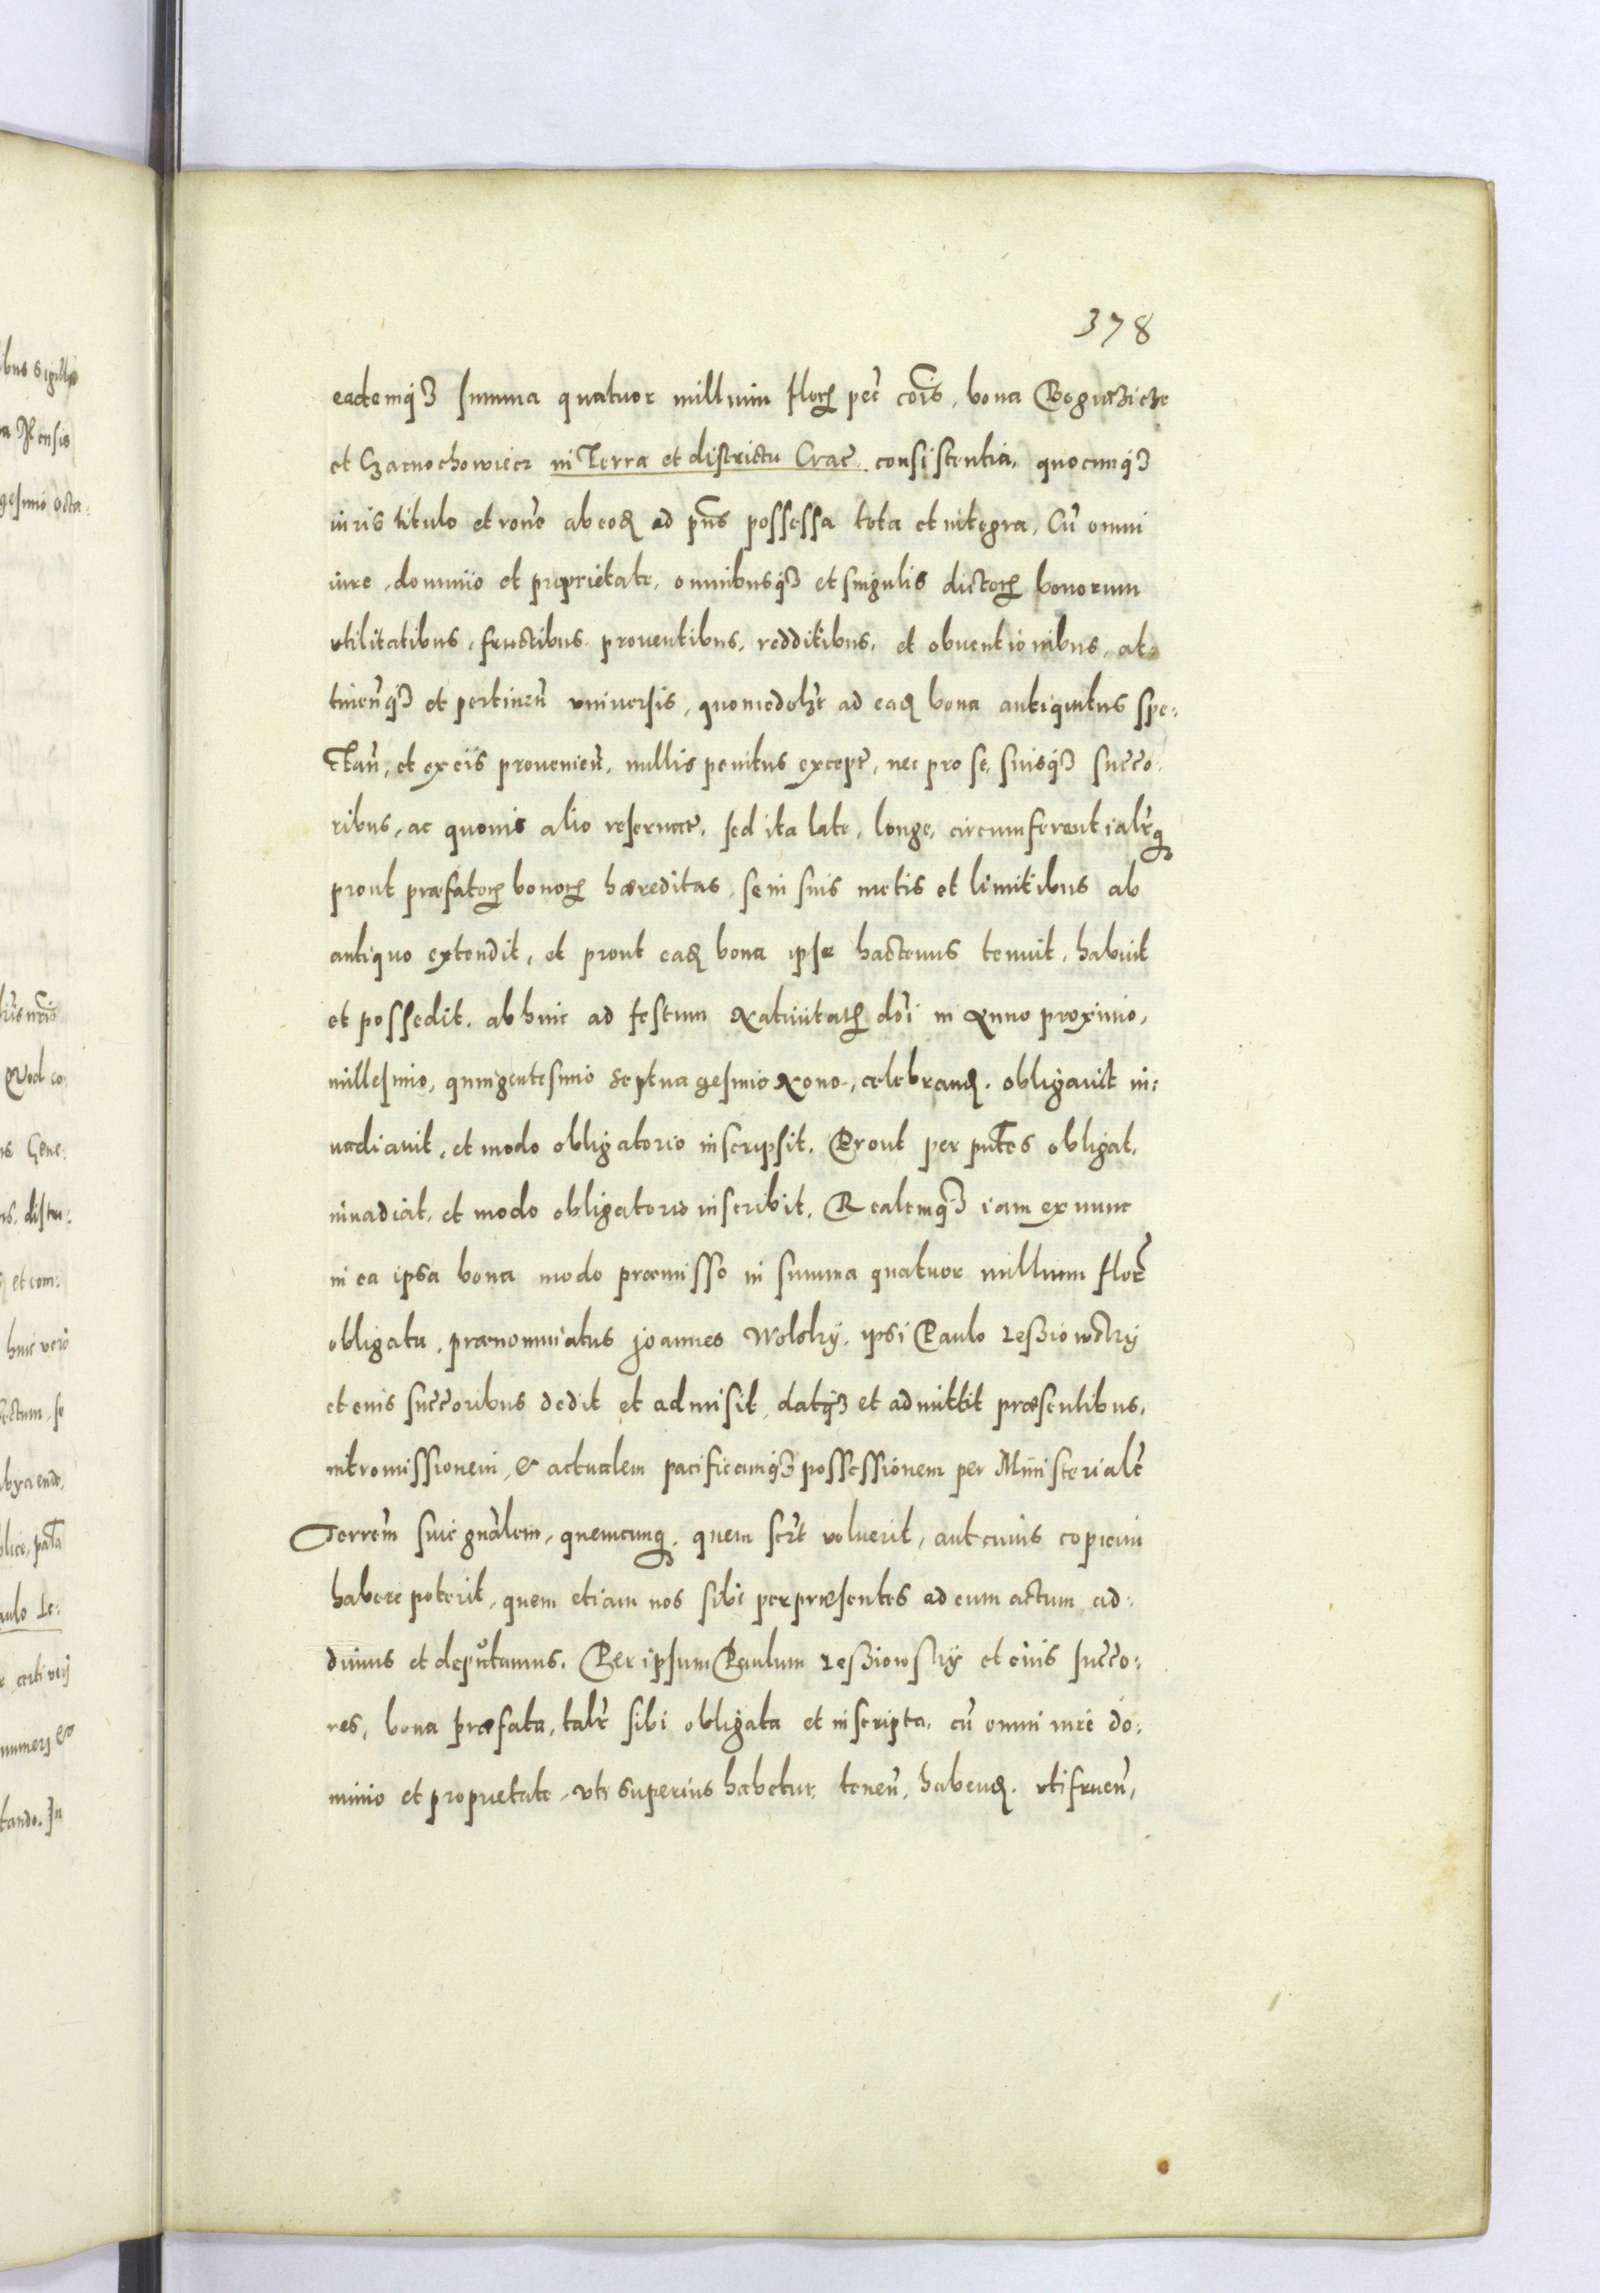 378
eademq3 summa quatuor millium floꝝ pec̃ cõis, bona Boguczicze
et Czarnochowicz in Terra et districtu Crac̃. consistentia, quocunq3
iuris titulo et rõne ab eoꝗ ad pñs possessa tota et integra, Cũ omni
iure, dominio et proprietate, omnibusq3 et singulis dictoꝝ bonorum
vtilitatibus, fructibus, prouentibus, redditibus, et obuentionibus, at:
tineñq3 et pertineñ vniuersis, quomodolt̃ ad eaꝗ bona antiquitus spe:
ctañ, et ex eis prouenieñ, nullis penitus except̃, nec pro se, suisq3 succo:
ribus, ac quouis alio reseruat̃, sed ita late, longe, circumferentialr̃q
prout præfatoꝝ bonoꝝ hæreditas, se in suis metis et limitibus ab
antiquo extendit, et prout eaꝗ bona ipse hactenus tenuit, habuit
et possedit. ab hinc ad festum Natiuitatꝝ dñi in Anno proximo,
millesimo, quingentesimo septuagesimo Nono, celebranꝗ. obligauit in:
uadiauit, et modo obligatorio inscripsit. Prout per pñtes obligat,
inuadiat, et modo obligatorio inscribit. Realemq3 iam ex nunc
in ea ipsa bona modo præmisso in summa quatuor millium flor̃
obligata, prænominatus Joannes Wolsky, ipsi Paulo Leßiowsky
et eius succoribus dedit et admisit, datq3 et admittit præsentibus,
intromissionem, & actualem pacificamq3 possessionem per Ministerialẽ
Terrem̃ siue gnãlem, quemcunq. quem ser̃t voluerit, aut cuius copiam
habere poterit, quem etiam nos sibi per præsentes ad eum actum ad:
dimus et deputamus. Per ipsum Paulum Leßiowsky et eius succo:
res, bona præfata, talr̃ sibi obligata et inscripta, cũ omni iure do:
minio et proprietate, vti superius habetur, teneñ, habenꝗ. vtifrueñ,